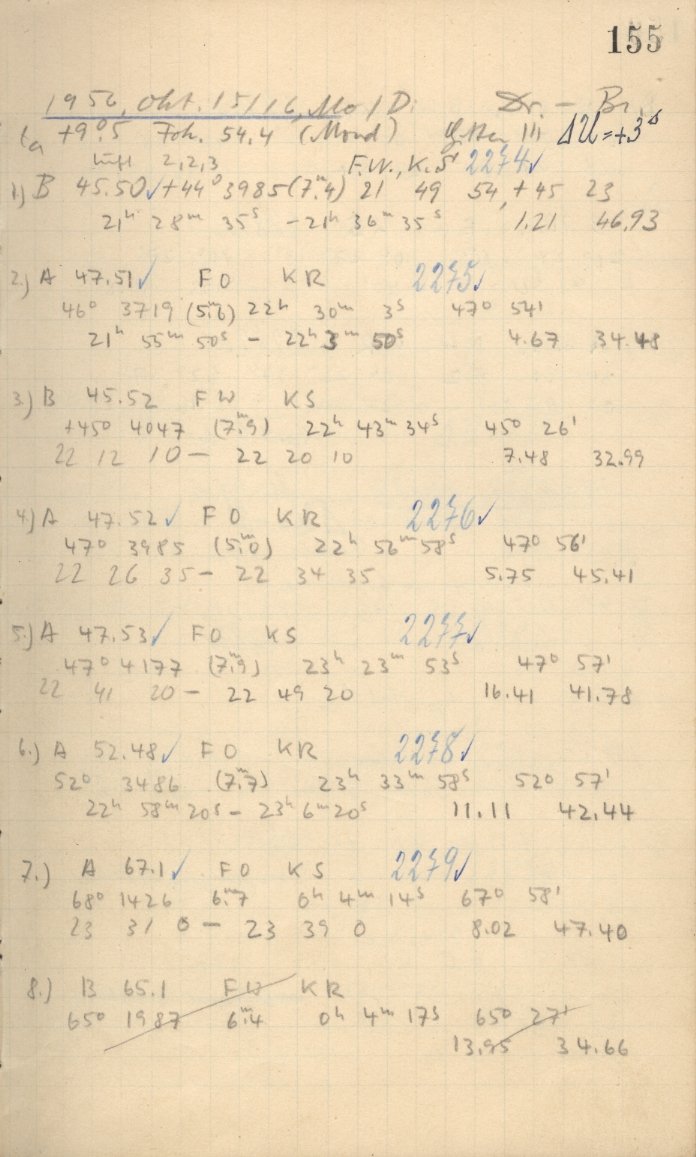 155
1956, Okt. 15/16, Mo/Di Dr. – Br.
ta +9°.5 Fok. 54.4 (Mond) Gitter III ΔU = +3ˢ
Luft 2,2,3 F.W., K.S 2274✓
1.) B 45.50✓ +44° 3985 (7ᵐ.4) 21 49 54, +45 23
21ʰ 28ᵐ 35ˢ – 21ʰ 36ᵐ 35ˢ 1.21 46.93
2.) A 47.51✓ F O K R 2275✓
46° 3719 (5ᵐ.6) 22ʰ 30ᵐ 3ˢ 47° 54'
21ʰ 55ᵐ 50ˢ – 22ʰ 3ᵐ 50ˢ 4.67 34.48
3.) B 45.52 F W K S
+45° 4047 (7ᵐ.9) 22ʰ 43ᵐ 34ˢ 45° 26'
22 12 10 – 22 20 10 7.48 32.99
4.) A 47.52✓ F O K R 2276✓
47° 3985 (5ᵐ.0) 22ʰ 56ᵐ 58ˢ 47° 56'
22 26 35 – 22 34 35 5.75 45.41
5.) A 47.53✓ F O K S 2277✓
47° 4177 (7ᵐ.9) 23ʰ 23ᵐ 53ˢ 47° 57'
22 41 20 – 22 49 20 16.41 41.78
6.) A 52.48✓ F O K R 2278✓
52° 3486 (7ᵐ.7) 23ʰ 33ᵐ 58ˢ 52° 57'
22ʰ 58ᵐ 20ˢ – 23ʰ 6ᵐ 20ˢ 11.11 42.44
7.) A 67.1✓ F O K S 2279✓
68° 1426 6ᵐ.7 0ʰ 4ᵐ 14ˢ 67° 58'
23 31 0 – 23 39 0 8.02 47.40
8.) B 65.1 F W K R
65° 1987 6ᵐ.4 0ʰ 4ᵐ 17ˢ 65° 27'
13.95 34.66